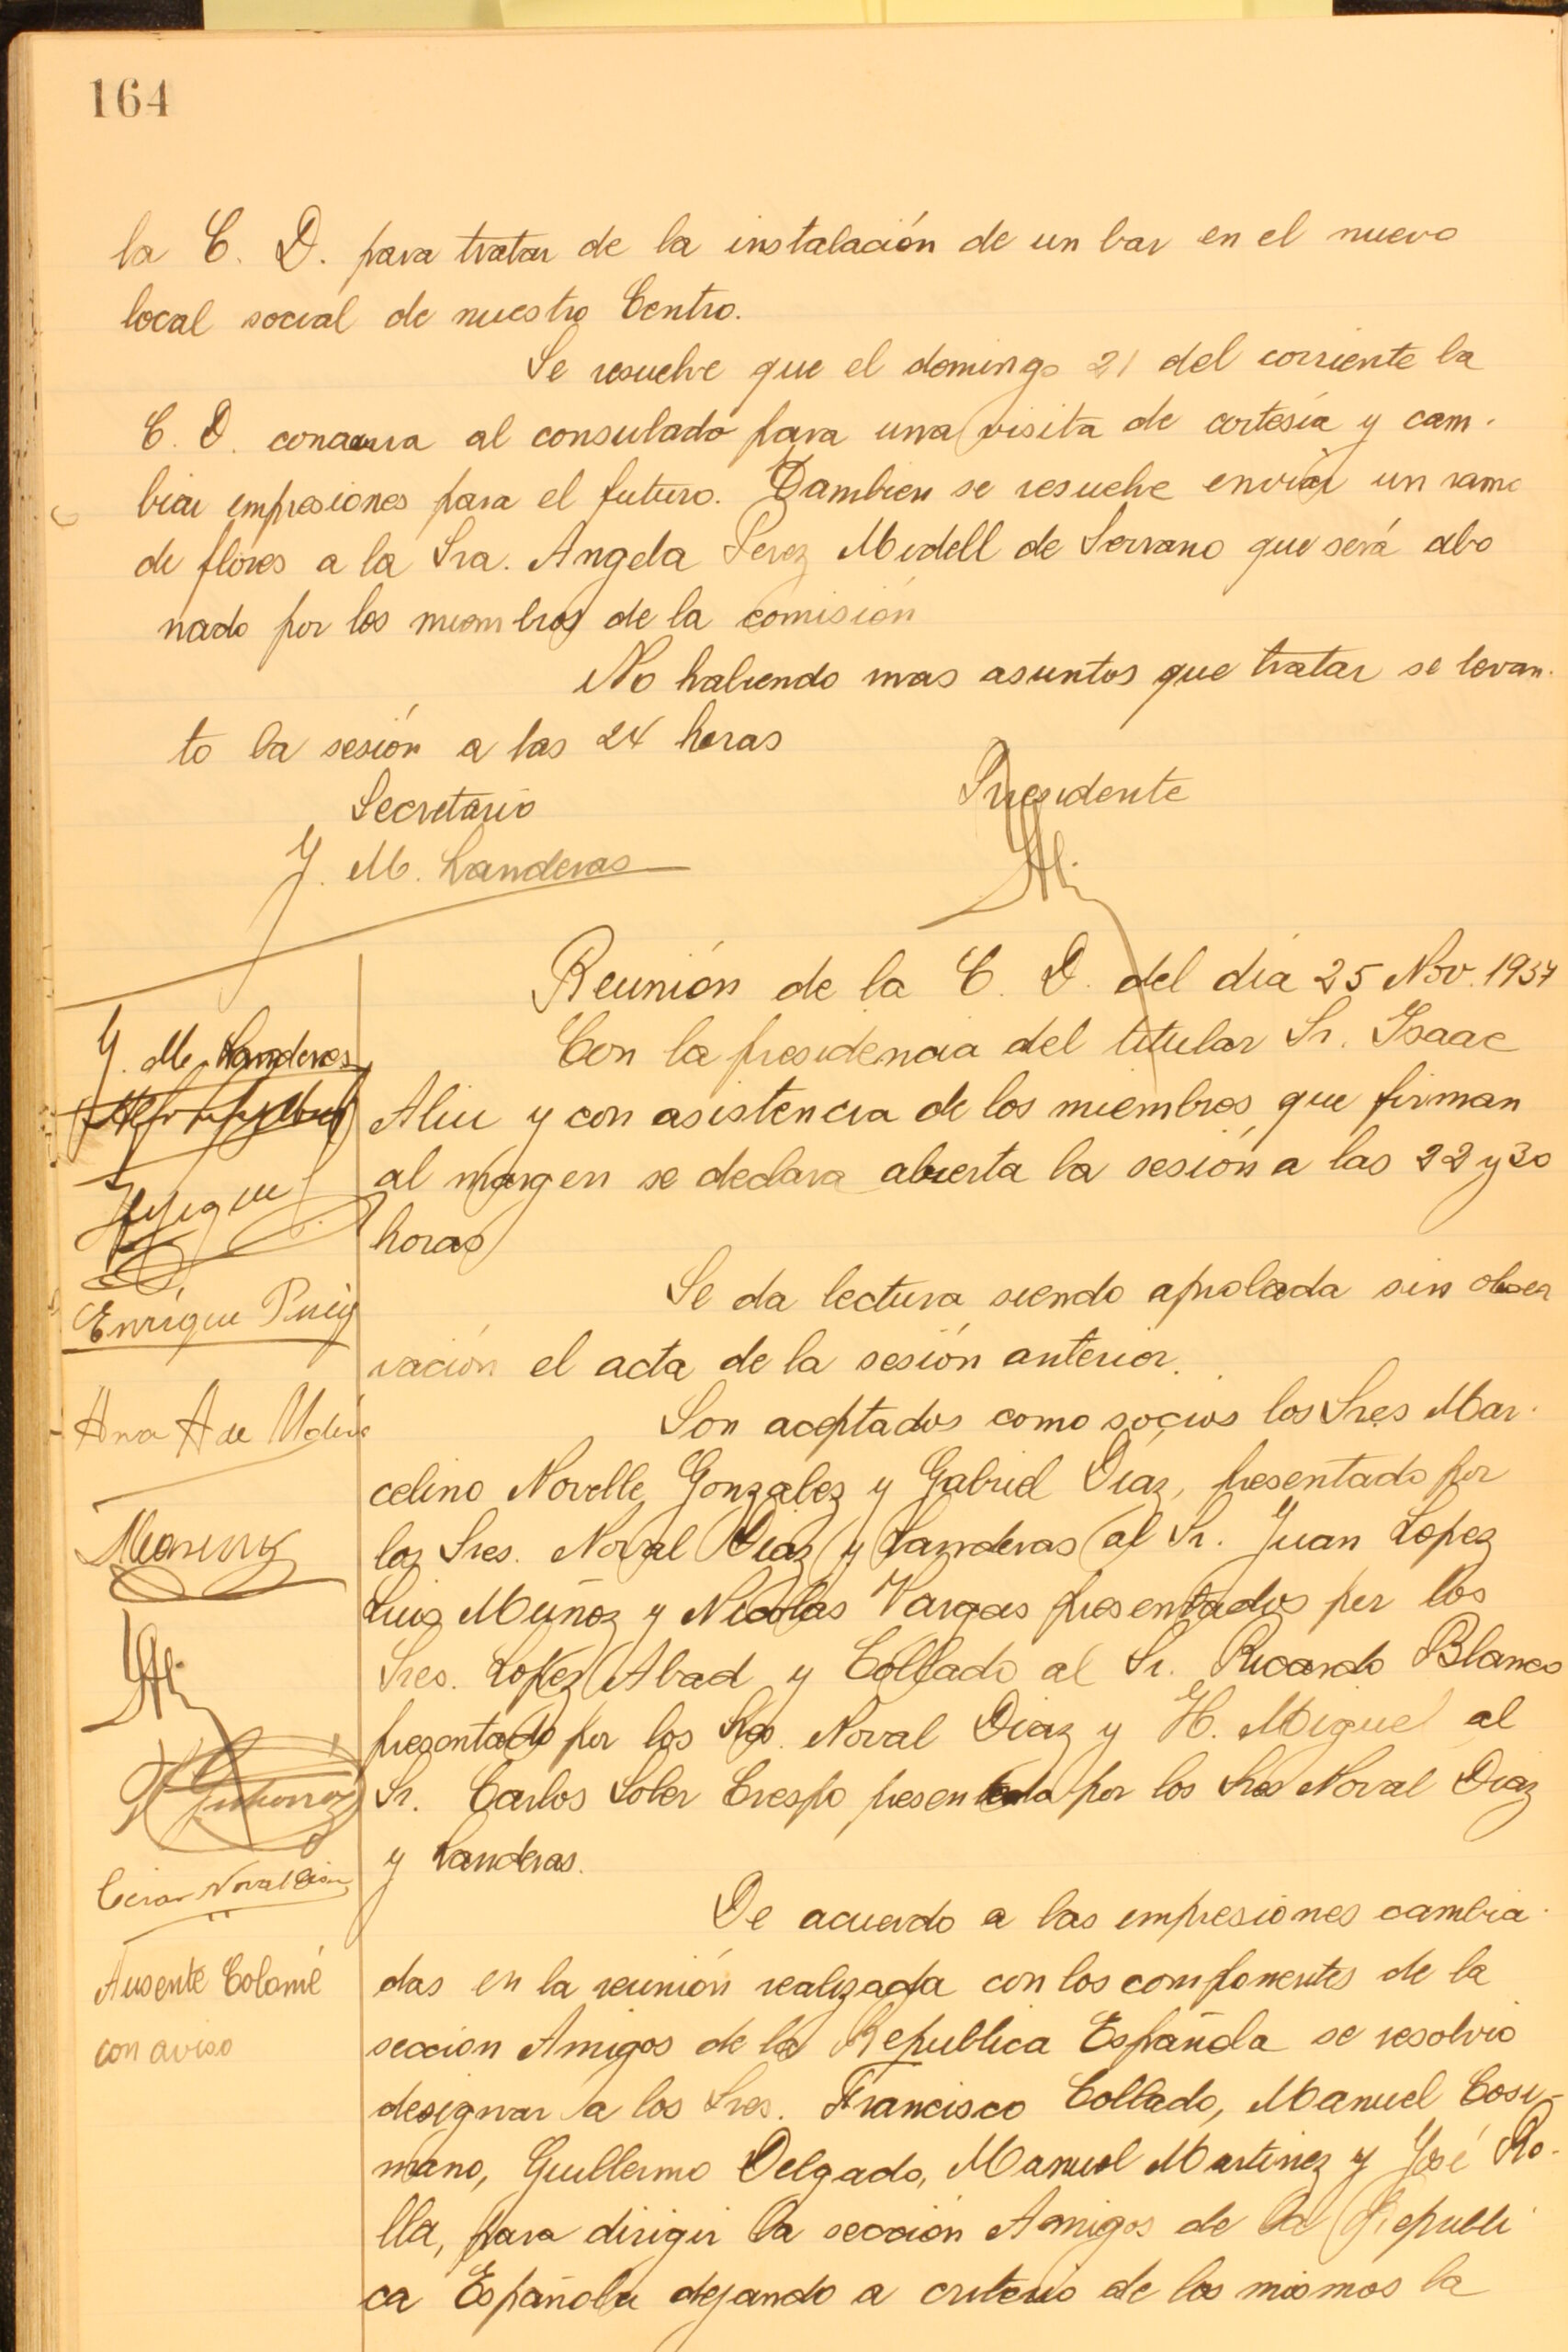 164
la C. D. para tratar de la instalación de un bar en el nuevo
local social de nuestro Centro.
Se resuelve que el domingo 21 del corriente la
C. D. concurra al consulado para una visita de cortesía y cam-
biar impresiones para el futuro. Tambien se resuelve enviar un ramo
de flores a la Sra. Angela Perez Medell de Serrano que será abo
nado por los miembros de la comisión
No habiendo mas asuntos que tratar se levan-
to la sesión a las 24 horas
Secretario
Presidente
J. M. Landeras
Reunión de la C. D. del día 25 Nov. 1937
Con la presidencia del titular Sr. Isaac
Aliu y con asistencia de los miembros que firman
al margen se declara abierta la sesión a las 22 y 30
horas
Se da lectura siendo aprobada sin obser
vación el acta de la sesión anterior.
Son aceptados como socios los Sres Mar-
celino Novelle Gonzalez y Gabriel Díaz, presentado por
los Sres. Noval Diaz y Landeras al Sr. Juan Lopez
Luis Muñoz y Nicolas Vargas presentados por los
Sres. Lopez Abad y Collado al Sr. Ricardo Blanco
presentado por los Sres. Noval Diaz y H. Miguel al
Sr. Carlos Soler Crespo presentado por los Sres Noval Diaz
y Landeras.
De acuerdo a las empresiones cambia-
das en la reunión realizada con los componentes de la
seccion Amigos de la Republica Española se resolvio
designar a los Sres. Francisco Collado, Manuel Cosi-
mano, Guillermo Delgado, Manuel Martinez y José Ro-
lla, para dirigir la sección Amigos de la Republi
ca Española dejando a criterio de los mismos la
J. M. Landeras
Enrique Puig
Ana A de
Cesar Noval Diaz
Ausente Colomé
con aviso